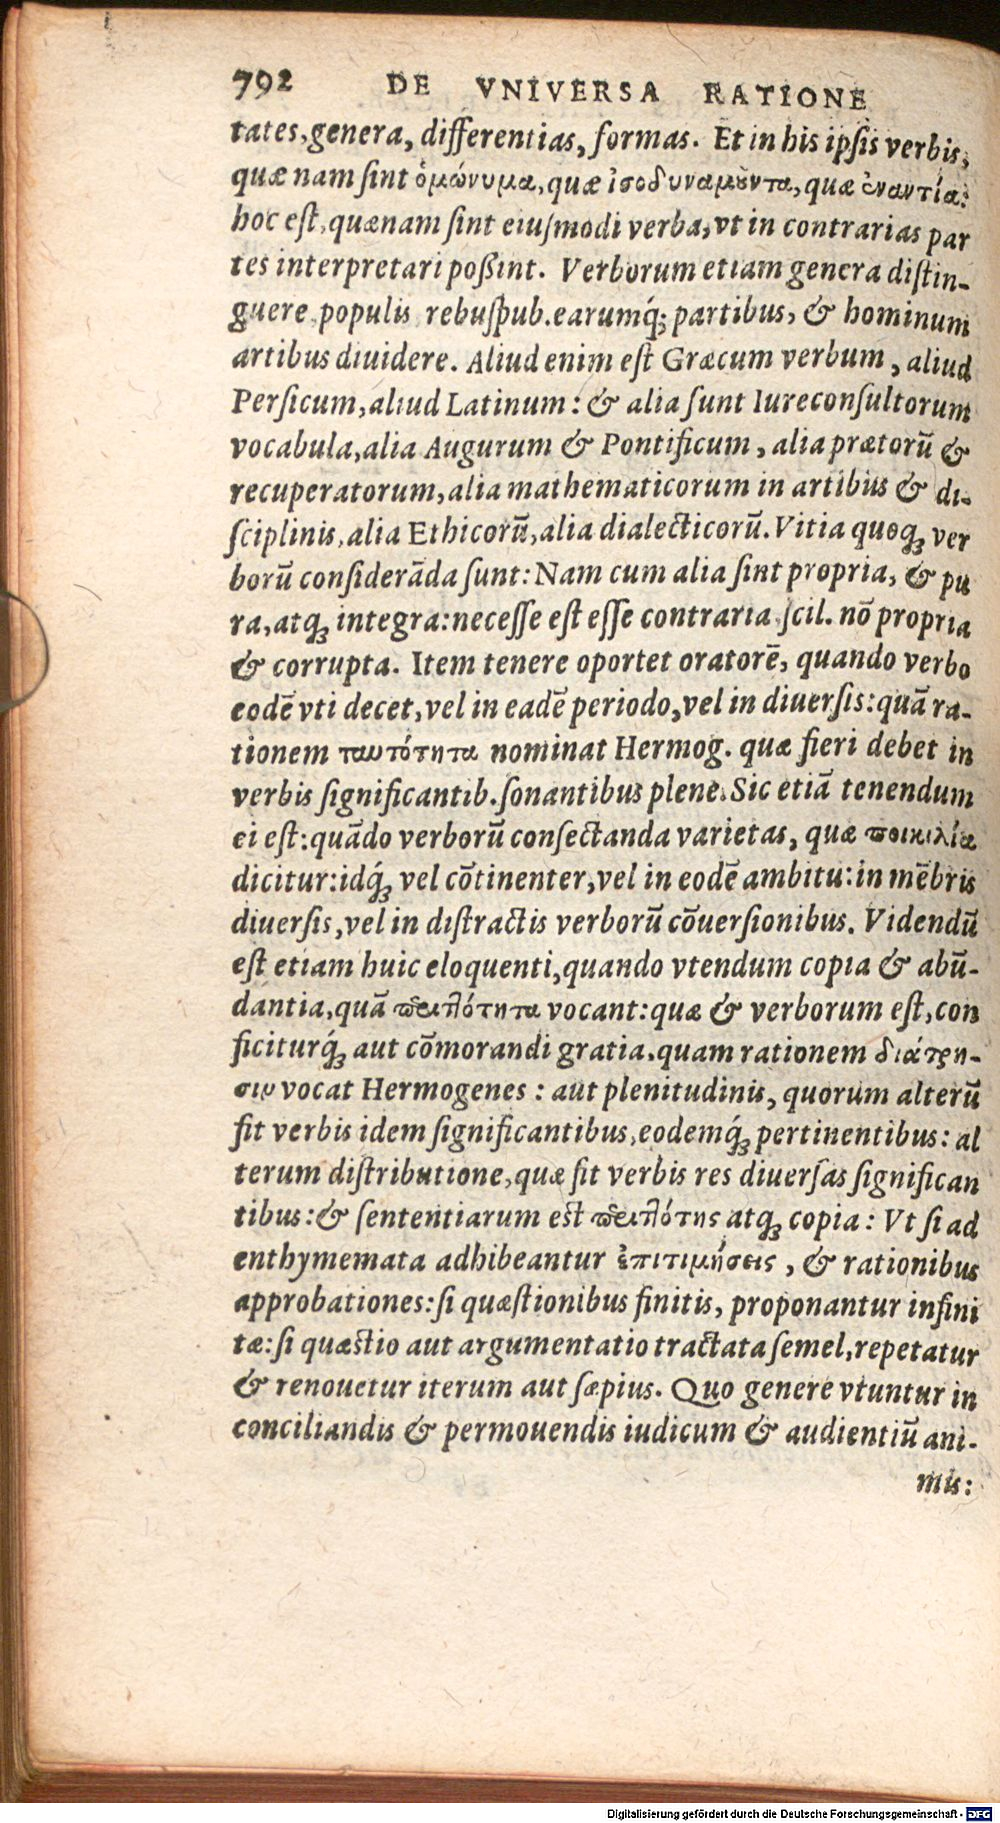 792 DE VNIVERSA RATIONE
tates, genera, differentias, formas. Et in his ipsis verbis,
quæ nam sint ὁμώνυμα, quæ ἰσοδυναμοῦντα, quæ ἐναντία:
hoc est, quænam sint eiusmodi verba, vt in contrarias par
tes interpretari poßint. Verborum etiam genera distin-
guere populis rebuspub. earumq́; partibus, & hominum
artibus diuidere. Aliud enim est Græcum verbum, aliud
Persicum, aliud Latinum: & alia sunt Iureconsultorum
vocabula, alia Augurum & Pontificum, alia prætorũ &
recuperatorum, alia mathematicorum in artibus & di-
sciplinis, alia Ethicorũ, alia dialecticorũ. Vitia quoq; ver
borũ considerãda sunt: Nam cum alia sint propria, & pu
ra, atq; integra: necesse est esse contraria scil. nõ propria
& corrupta. Item tenere oportet oratorẽ, quando verbo
eodẽ vti decet, vel in eadẽ periodo, vel in diuersis: quã ra-
tionem ταυτότητα nominat Hermog. quæ fieri debet in
verbis significantib. sonantibus plene. Sic etiã tenendum
ei est: quãdo verborũ consectanda varietas, quæ ποικιλία
dicitur: idq́; vel cõtinenter, vel in eodẽ ambitu: in mẽbris
diuersis, vel in distractis verborũ cõuersionibus. Videndũ
est etiam huic eloquenti, quando vtendum copia & abũ-
dantia, quã πεϱιπλότητα vocant: quæ & verborum est, con
ficiturq́; aut cõmorandi gratia. quam rationem διάτρη-
σιν vocat Hermogenes: aut plenitudinis, quorum alterũ
fit verbis idem significantibus, eodemq́; pertinentibus: al
terum distributione, quæ fit verbis res diuersas significan
tibus: & sententiarum est πεϱιπλότης atq; copia: Vt si ad
enthymemata adhibeantur ἐπιτιμήσεις, & rationibus
approbationes: si quæstionibus finitis, proponantur infini
tæ: si quæstio aut argumentatio tractata semel, repetatur
& renouetur iterum aut sæpius. Quo genere vtuntur in
conciliandis & permouendis iudicum & audientiũ ani-
mis:
Digitalisierung gefördert durch die Deutsche Forschungsgemeinschaft - DFG